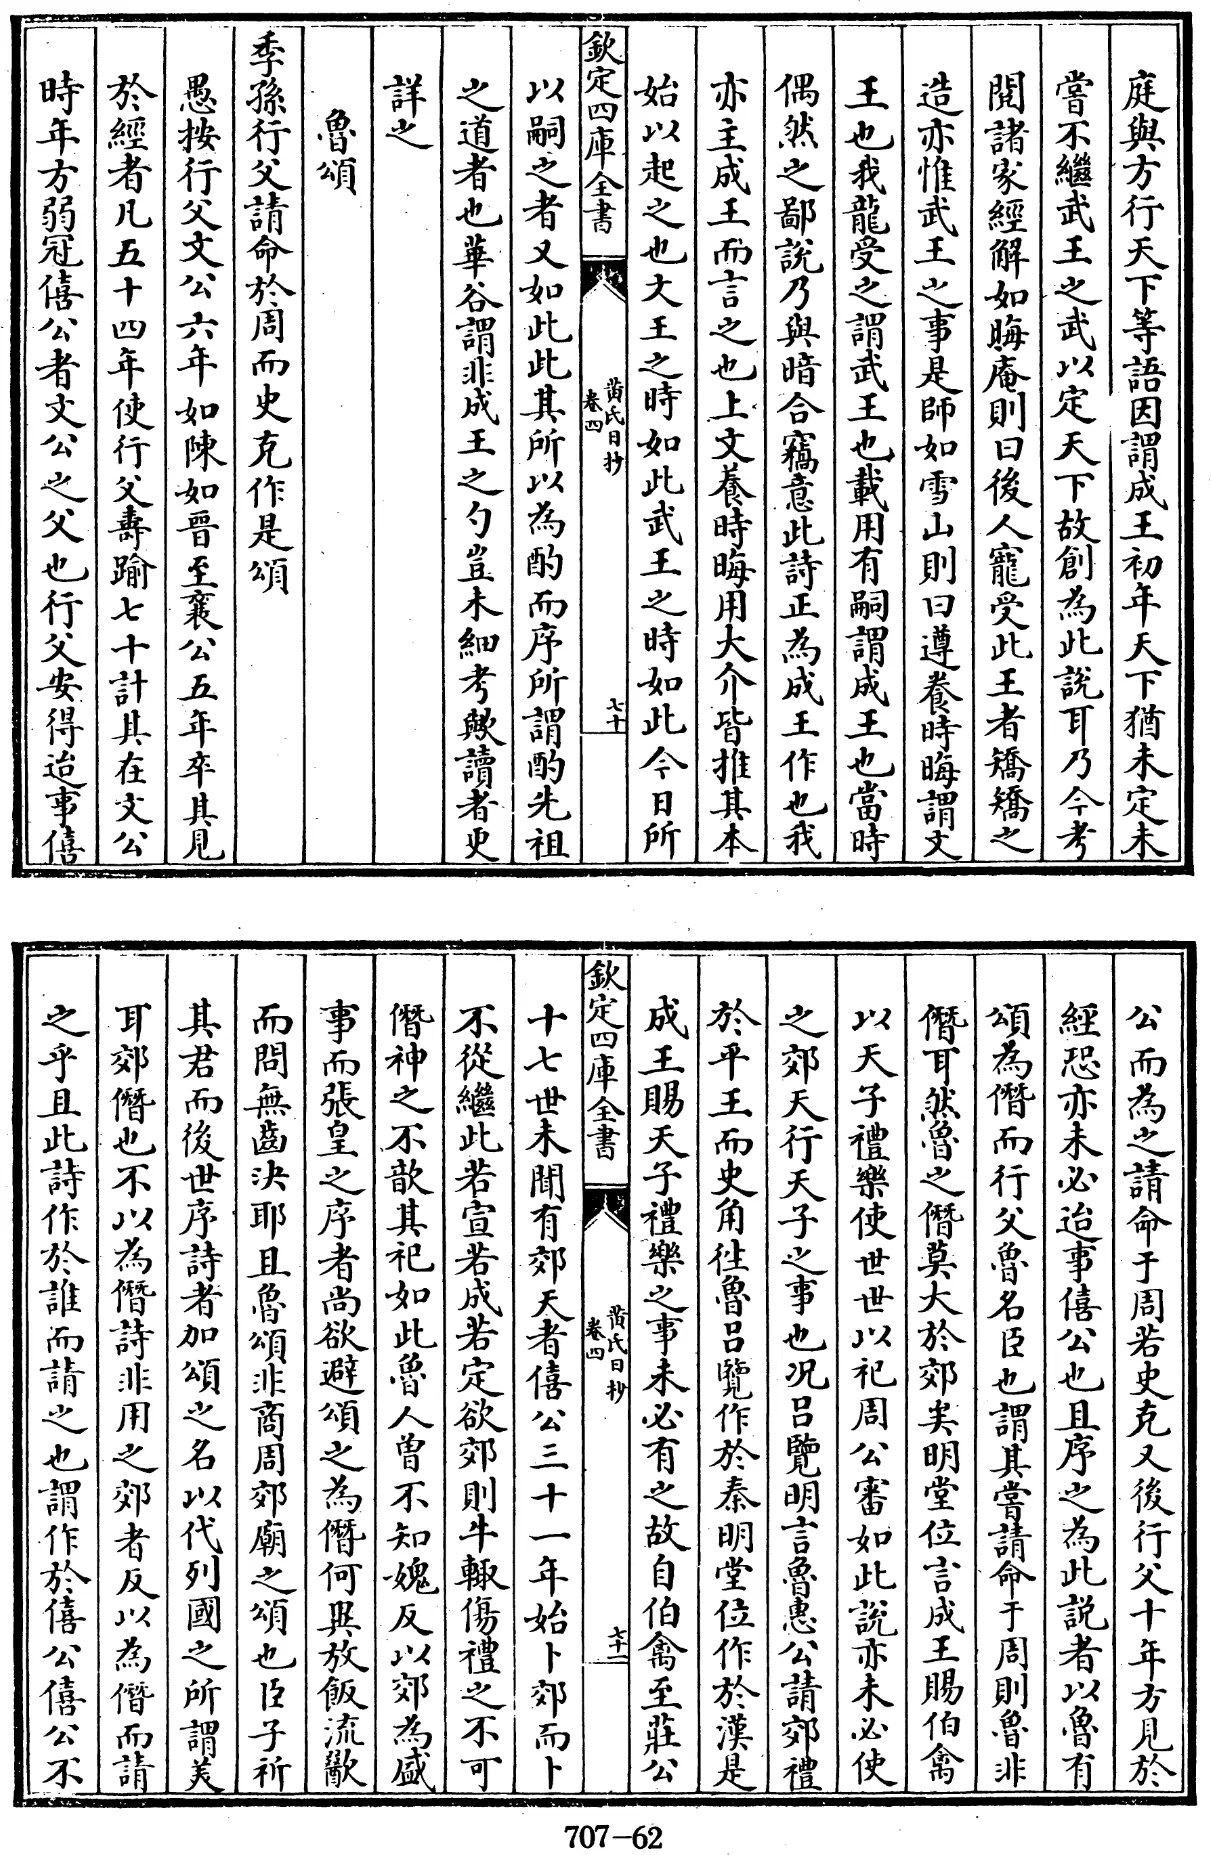 庭與方行天下等語因謂成王初年天下猶未定未
嘗不繼武王之武以定天下故創為此説耳乃今考
閱諸家經解如晦庵則曰後人寵受此王者矯矯之
造亦惟武王之事是師如雪山則曰遵養時晦謂文
王也我龍受之謂武王也載用有嗣謂成王也當時
偶然之鄙説乃與暗合竊意此詩正為成王作也我
亦主成王而言之也上文養時晦用大介皆推其本
始以起之也文王之時如此武王之時如此今日所
欽定四庫全書
黄氏日抄
卷四
七十
以嗣之者又如此此其所以為酌而序所謂酌先祖
之道者也華谷謂非成王之勺豈未細考歟讀者更
詳之
魯頌
季孫行父請命於周而史克作是頌
愚按行父文公六年如陳如晉至襄公五年卒其見
於經者凡五十四年使行父壽踰七十計其在文公
時年方弱冠僖公者文公之父也行父安得迨事僖
公而為之請命于周若史克又後行父十年方見於
經恐亦未必迨事僖公也且序之為此説者以魯有
頌為僭而行父魯名臣也謂其嘗請命于周則魯非
僭耳然魯之僭莫大於郊矣明堂位言成王賜伯禽
以天子禮樂使世世以祀周公審如此説亦未必使
之郊天行天子之事也况吕覽明言魯惠公請郊禮
於平王而史角往魯吕覽作於秦明堂位作於漢是
成王賜天子禮樂之事未必有之故自伯禽至莊公
欽定四庫全書
黄氏日抄
卷四
七十一
十七世未聞有郊天者僖公三十一年始卜郊而卜
不從繼此若宣若成若定欲郊則牛輙傷禮之不可
僭神之不歆其祀如此魯人曾不知媿反以郊為盛
事而張皇之序者尚欲避頌之為僭何異放飯流歠
而問無齒決耶且魯頌非商周郊廟之頌也臣子祈
其君而後世序詩者加頌之名以代列國之所謂美
耳郊僭也不以為僭詩非用之郊者反以為僭而請
之乎且此詩作於誰而請之也謂作於僖公僖公不
707-62